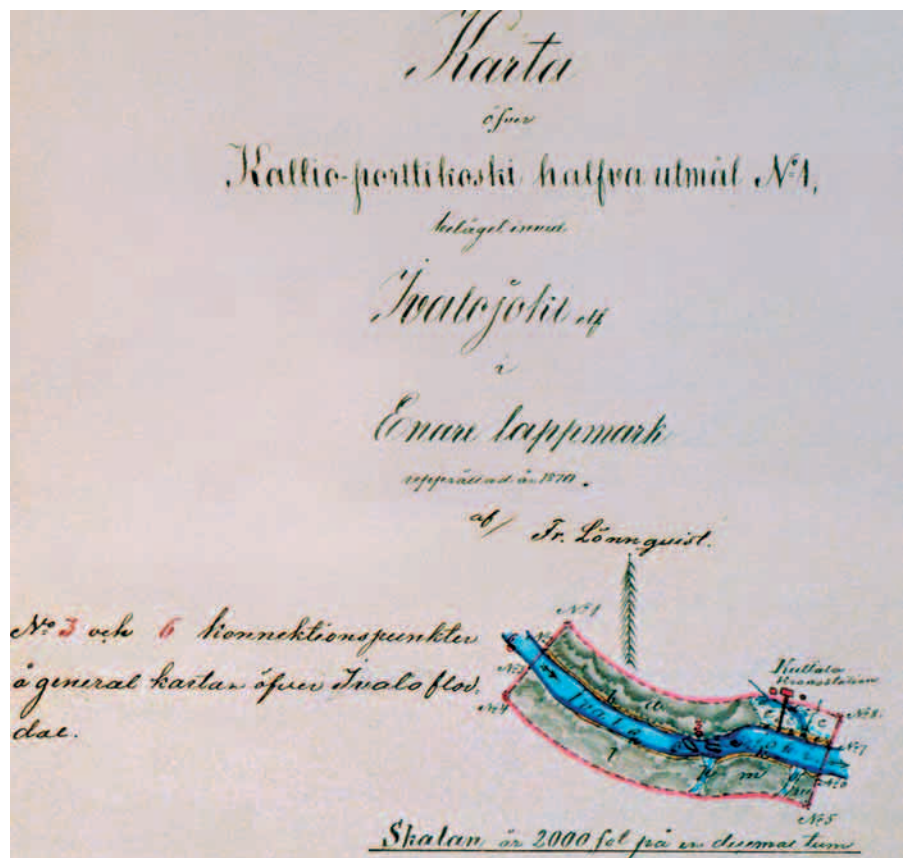 Karta
öfver
Kallio-porttikoski halfva utmål No 1,
beläget invid
Ivalojoki elf
i
Enare lappmark
upprättad år 1870.
af/ Fr. Lönnquist.
No 3 och 6 konnektionspunkter
å general kartan öfver Ivalo flod.
dal.
No 1
No 2
No 3
No 4
Kultala
Kronostation
No 8
No 7
No 6
No 5
Skalan är 2000 fot på en decimal tum